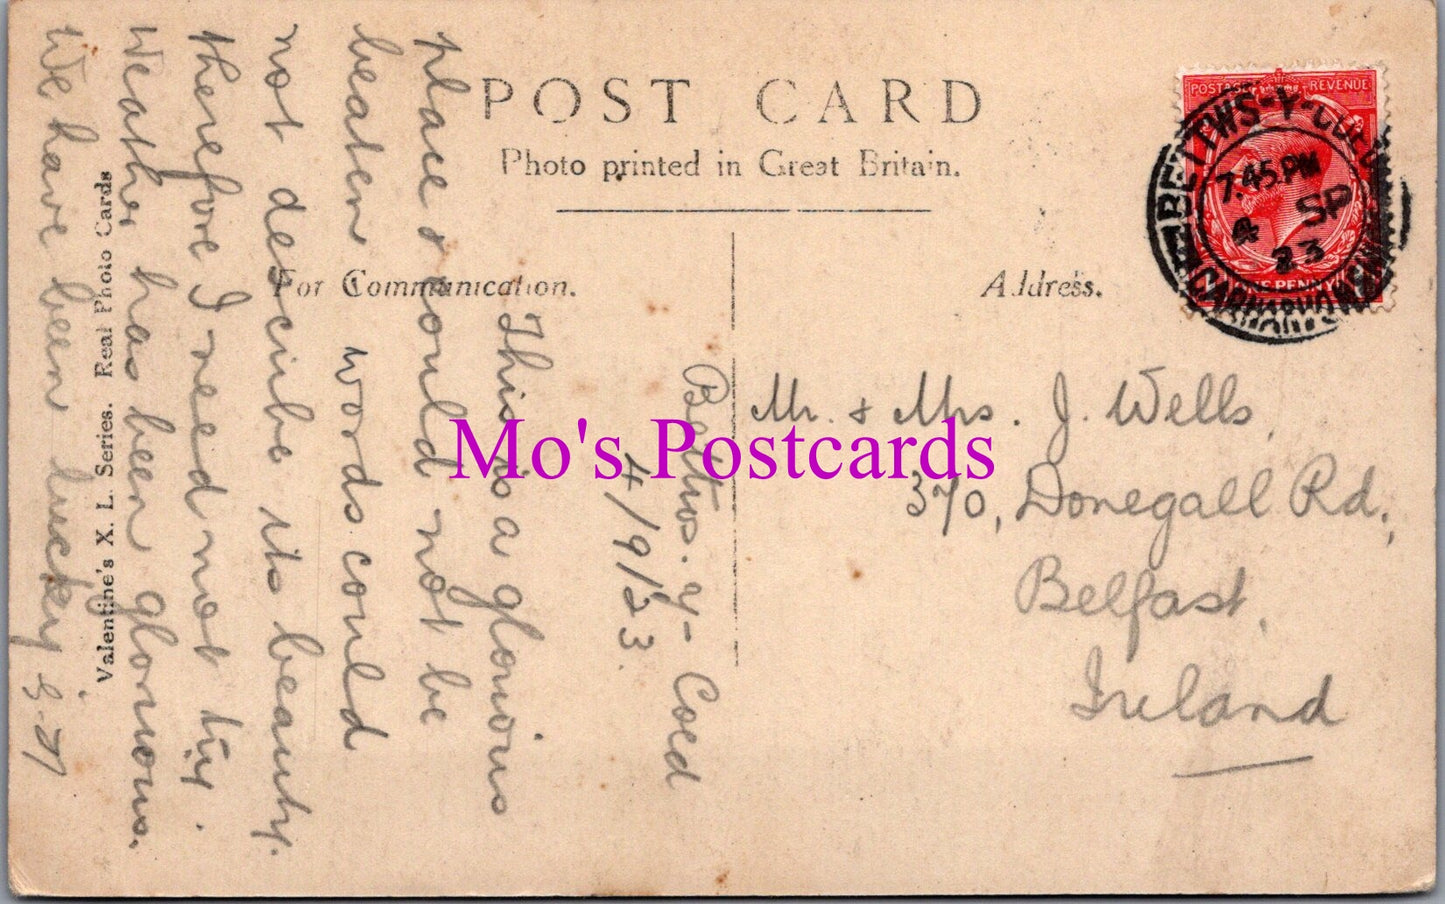 POST CARD
Photo printed in Great Britain.
For Communication.
Address.
POSTAGE REVENUE
ONE PENNY
BETTWS-Y-COED
7.45.PM
4 SP
23
CARNARVONSHIRE
Mr. & Mrs. J. Wells,
370, Donegall Rd,
Belfast,
Ireland
Bettws. y- Coed
4/9/23.
This is a glorious
place & could not be
beaten words could
not describe its beauty.
therefore I need not try.
Weather has been glorious.
We have been lucky
Valentine's X. L. Series. Real Photo Cards
Mo's Postcards